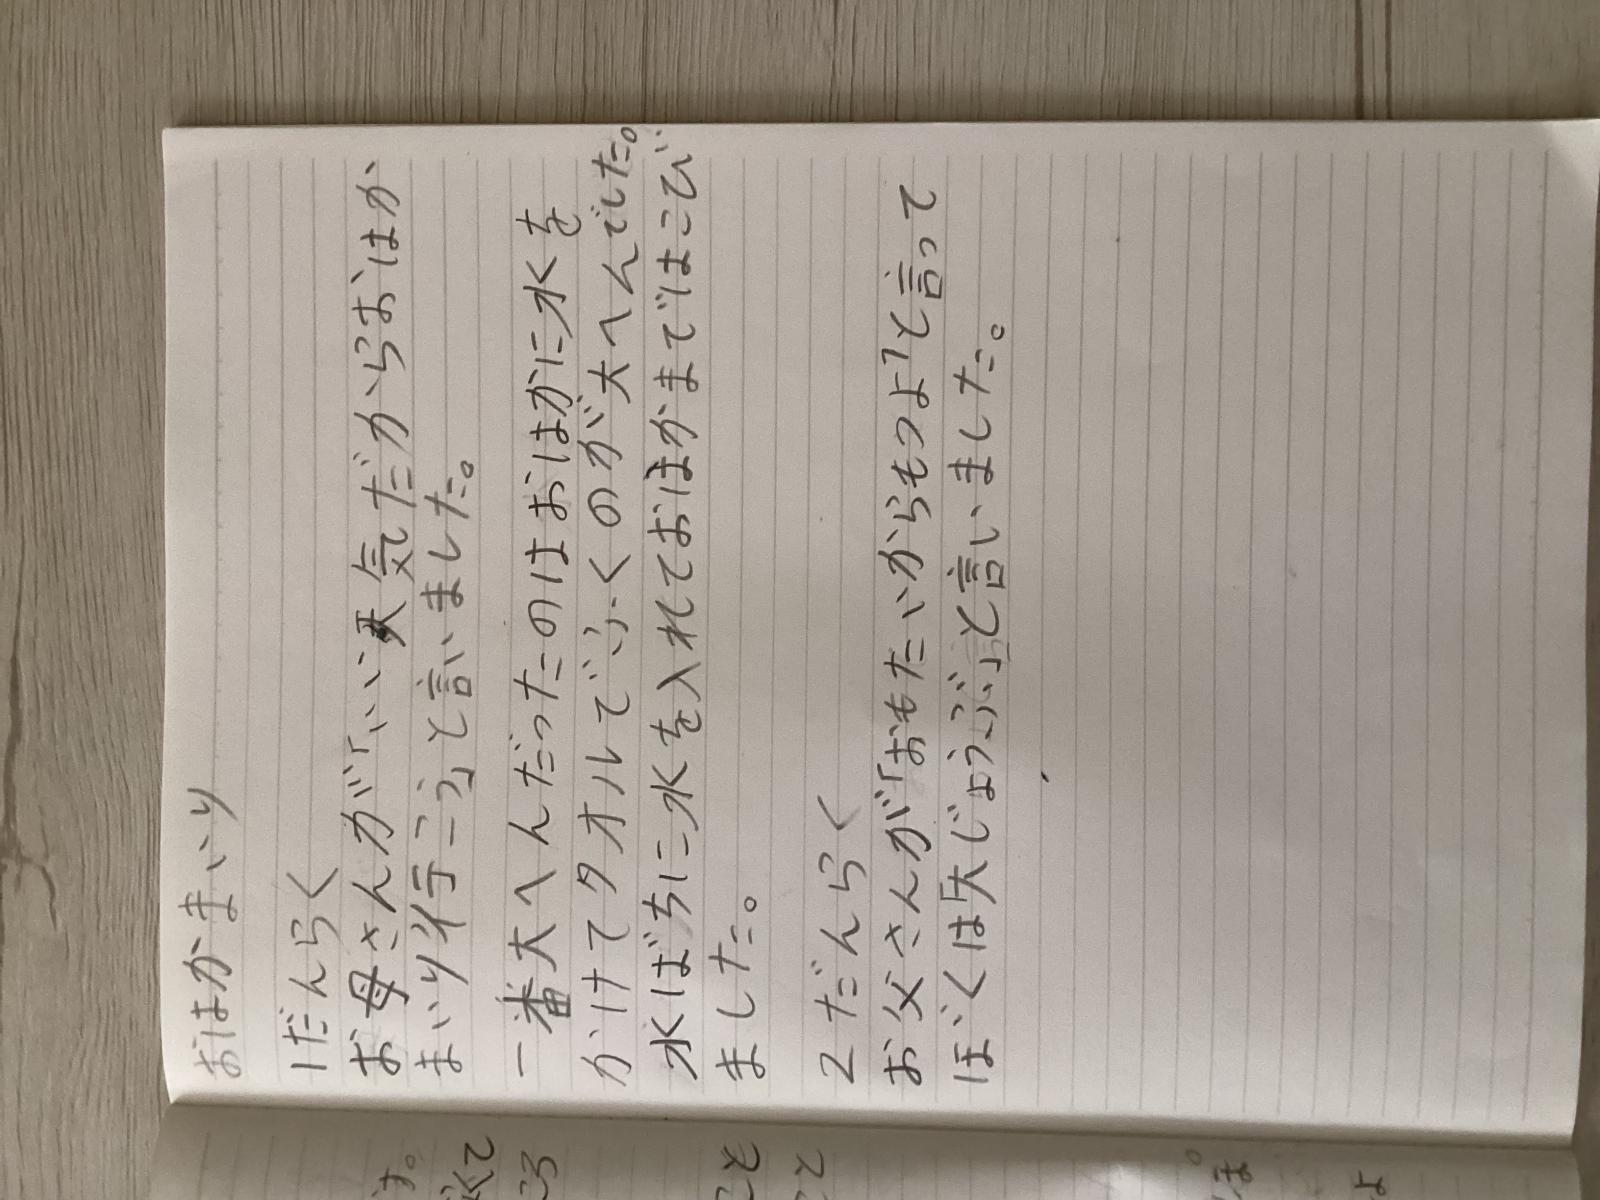 おはかまいり
1だんらく
お母さんが「いい天気だからおはか
まいり行こう」と言いました。
一番大へんだったのはおはかに水を
かけてタオルでふくのが大へんでした。
水ばちに水を入れておはかまではこび
ました。
2だんらく
お父さんが「おもたいからもつよ」と言って
ぼくは「大じょうぶ」と言いました。
す。
くて
ころ
こと
こと